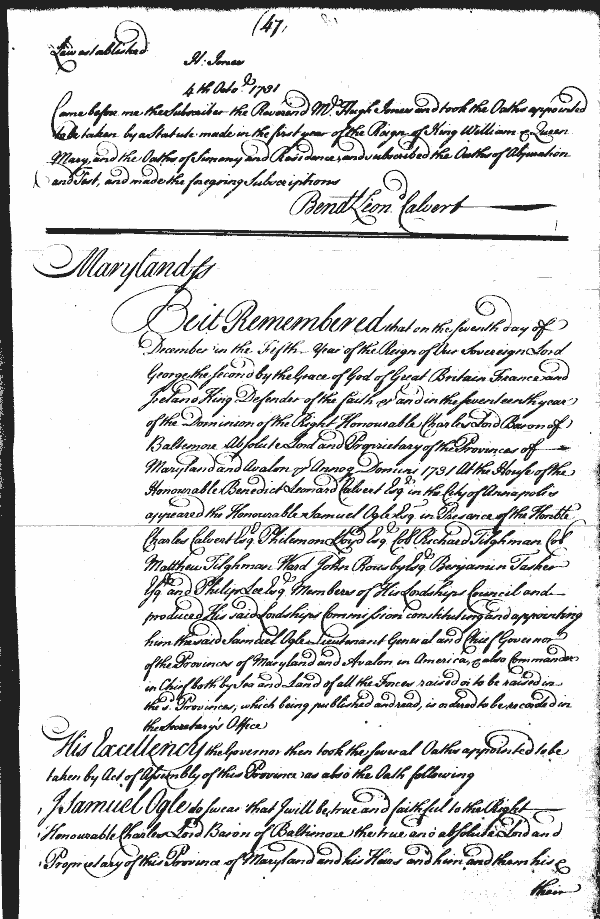 (47)
Law established
H: Jones
4th Octo.r 1731
Came before me the Subscriber the Reverend Mr. Hugh Jones and took the Oaths appointed
to be taken by a Statute made in the first year of the Reign of King William & Queen
Mary, and the Oaths of Simony and Residence, and subscribed the Oaths of Abjuration
and Test, and made the foregoing Subscriptions
Bend.t Leon.d Calvert
Maryland ss
Be it Remembered that on the seventh day of
December in the Fifth Year of the Reign of Our Sovereign Lord
George the second by the Grace of God of Great Britain France and
Ireland King Defender of the faith &c and in the seventeenth year
of the Dominion of the Right Honourable Charles Lord Baron of
Baltimore Absolute Lord and Proprietary of the Provinces of
Maryland and Avalon &c Annoq Domini 1731 At the House of the
Honourable Benedict Leonard Calvert Esq.r in the City of Annapolis
appeared the Honourable Samuel Ogle Esq.r in Presence of the Honble
Charles Calvert Esq.r Philemon Lloyd Esq.r Coll Richard Tilghman Coll
Matthew Tilghman Ward John Rousby Esq.r Benjamin Tasker
Esq.r and Philip Lee Esq.r Members of His Lordships Council and
produced His said Lordships Commission constituting and appointing
him the said Samuel Ogle Lieutenant General and Chief Governor
of the Provinces of Maryland and Avalon in America, & also Commander
in Chief both by Sea and Land of all the Forces raised or to be raised in
the s.d Provinces, which being published and read, is ordered to be recorded in
the Secretary's Office
His Excellency the Governor then took the several Oaths appointed to be
taken by Act of Assembly of this Province as also the Oath following
I Samuel Ogle do swear that I will be true and faithful to the Right
Honourable Charles Lord Baron of Baltimore the true and absolute Lord and
Proprietary of this Province of Maryland and his Heirs and him and them his &
their